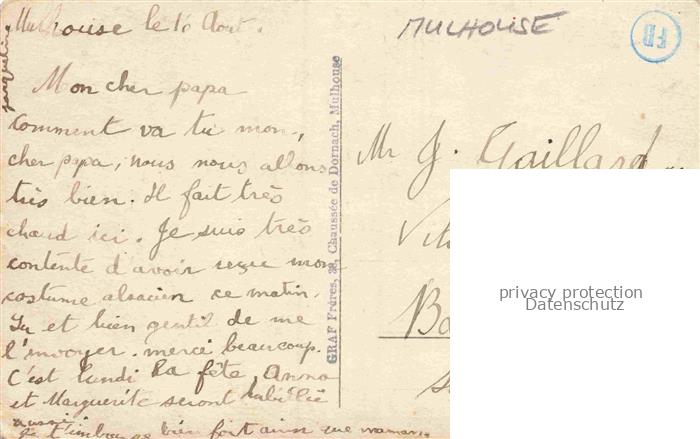 Mulhouse le 16 Aout.
MULHOUSE
FB
Jacqueline
Mon cher papa
Comment va tu mon
cher papa, nous nous allons
très bien. Il fait très
chaud ici. Je suis très
contente d'avoir reçue mon
costume alsacien ce matin.
Tu et bien gentil de me
l'envoyer. merci beaucoup.
C'est lundi la fête, Anna
et Marguerite seront habillée
aussi
Je t'embrasse bien fort ainsi que maman.
GRAF Frères, 38, Chaussée de Dornach, Mulhouse
Mr J. Gaillard
privacy protection
Datenschutz